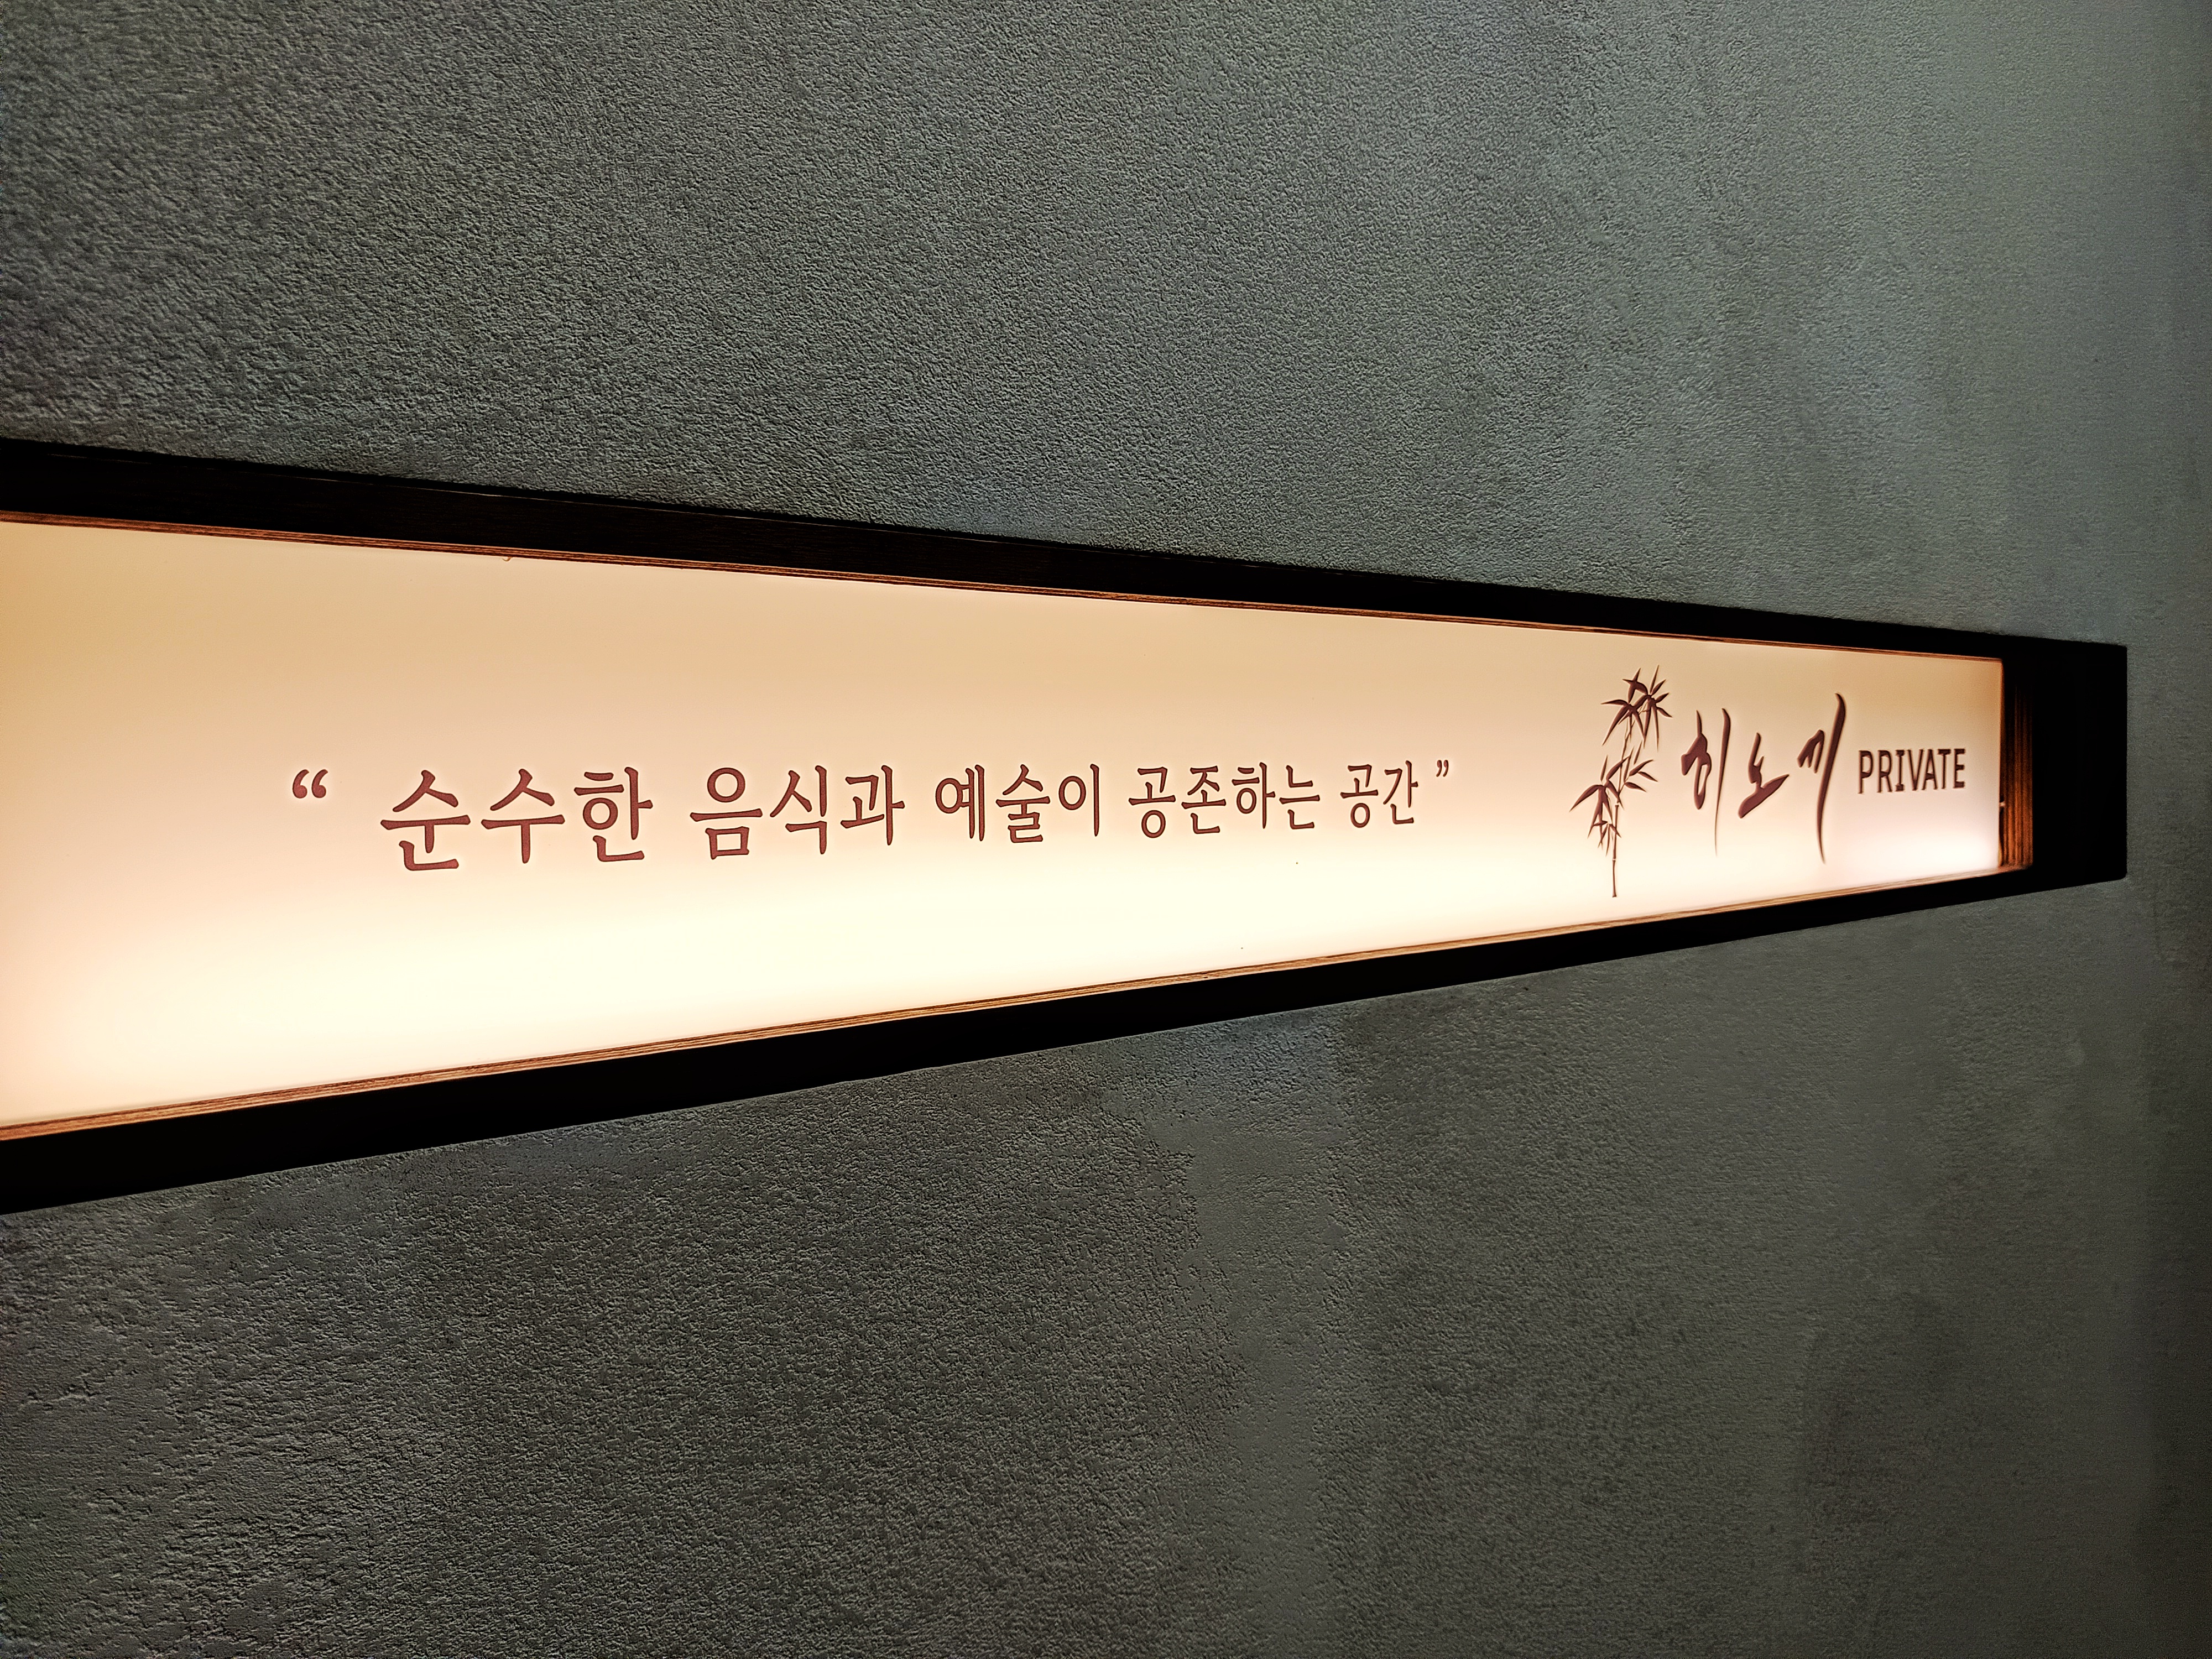 “ 순수한 음식과 예술이 공존하는 공간 ” 히노끼 PRIVATE